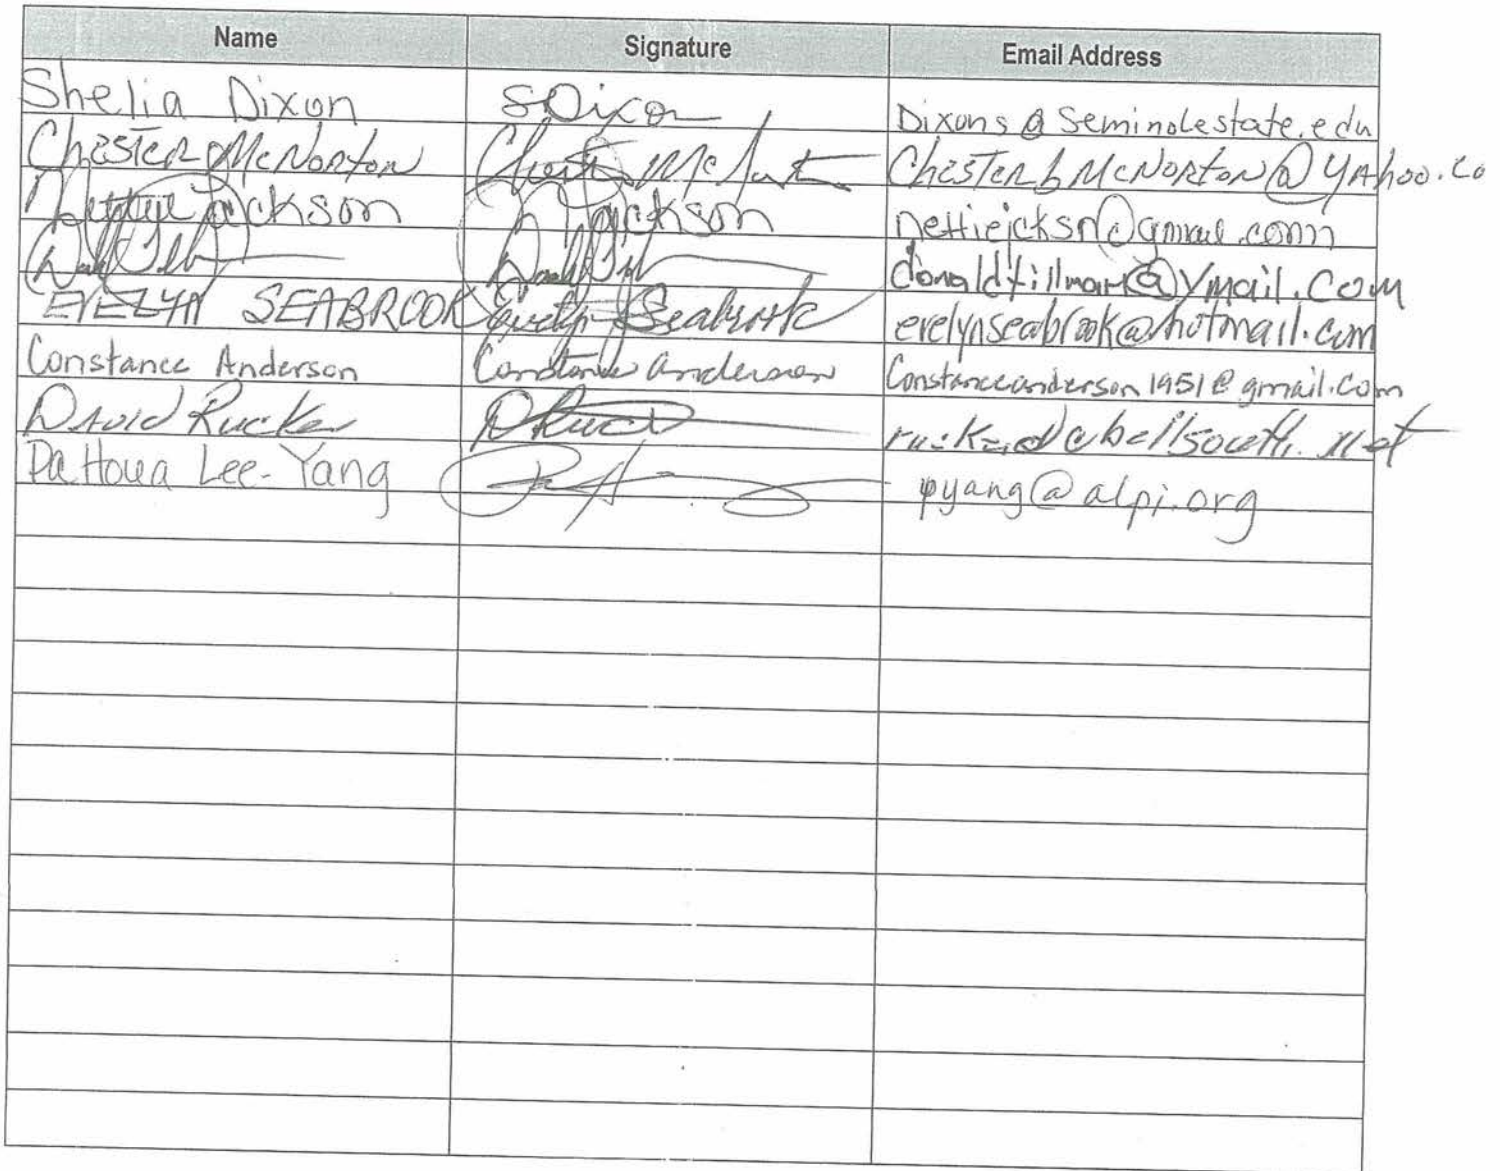 Name Signature Email Address
Shelia Dixon SDixon Dixons@Seminolestate.edu
Chester McNorton Chester McNort ChesterbMcNorton@Yahoo.co
Nettye Jackson N Jackson nettiejcksn@gmail.com
donaldtillman@Ymail.Com
EVELYN SEABROOK Evelyn Seabrook evelynseabrook@hotmail.com
Constance Anderson Constance Anderson Constanceanderson1951@gmail.com
David Rucker DRuck bellsouth.net
Pa Houa Lee-Yang pyang@alpi.org